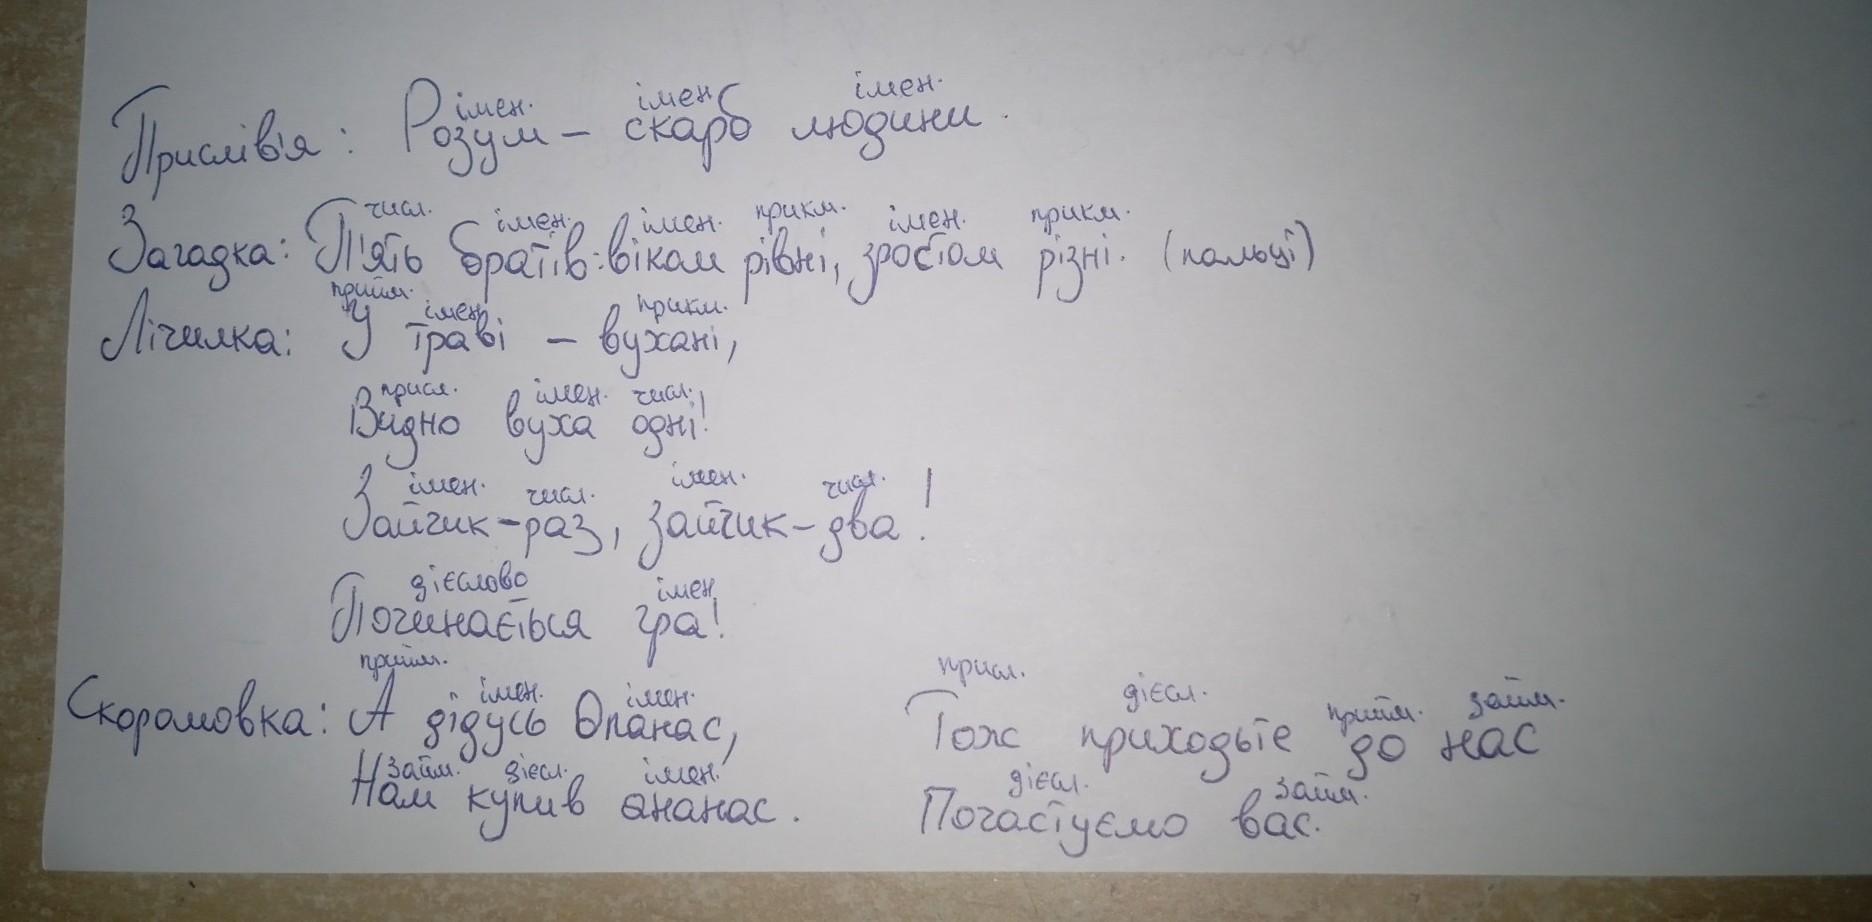 імен. імен імен.
Прислів'я: Розум – скарб людини.
числ. імен. імен. прикм. імен. прикм.
Загадка: П'ять братів: віком рівні, зростом різні. (пальці)
прийм. імен прикм.
Лічилка: У траві – вухані,
присл. імен. числ.
Видно вуха одні!
імен. числ. імен. числ.
Зайчик – раз, зайчик – два!
дієслово імен
Починається гра!
прийм. імен. імен.
Скоромовка: А дідусь Опанас,
займ. дієсл. імен.
Нам купив ананас.
присл. дієсл. прийм. займ.
Тож приходьте до нас
дієсл. займ.
Почастуємо вас.